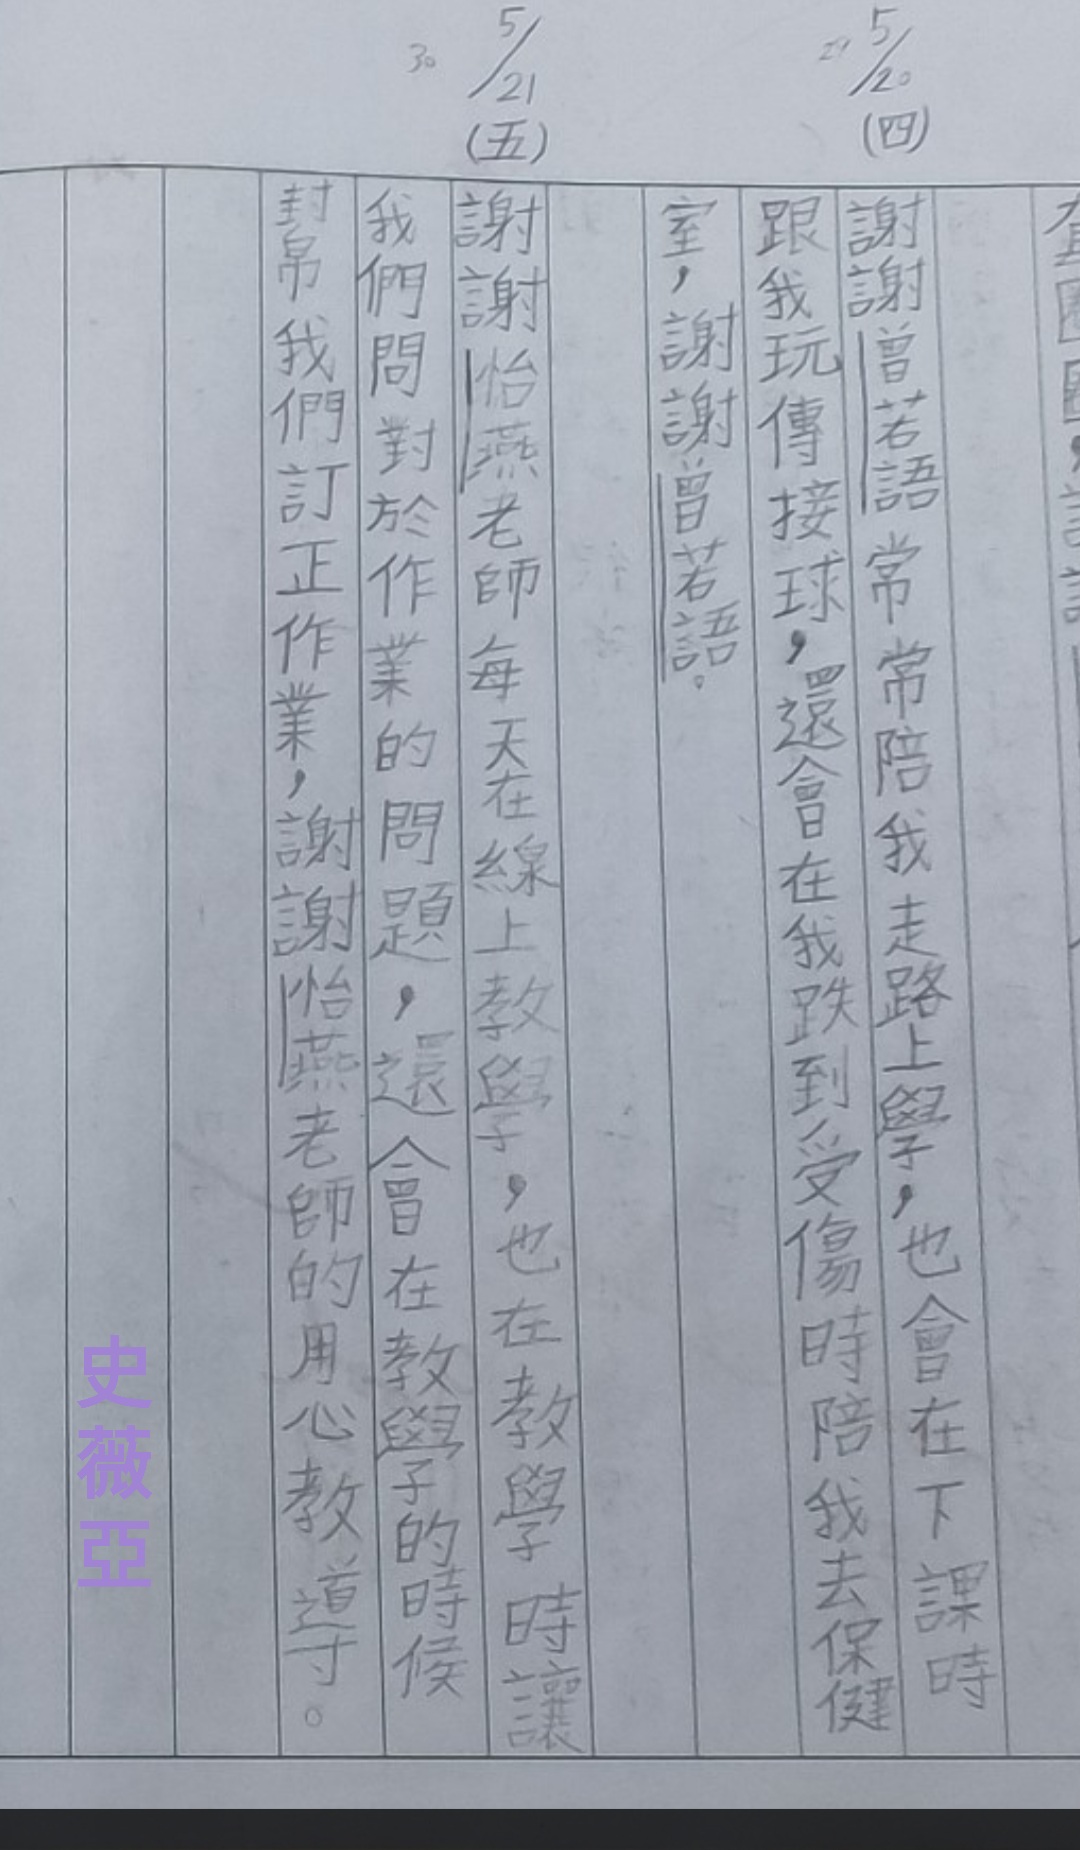 5/20
(四)
謝謝曾若語常常陪我走路上學,也會在下課時
跟我玩傳接球,還會在我跌到受傷時陪我去保健
室,謝謝曾若語。
30
5/21
(五)
謝謝怡燕老師每天在線上教學,也在教學時讓
我們問對於作業的問題,還會在教學的時候
幫我們訂正作業,謝謝怡燕老師的用心教導。
史薇亞